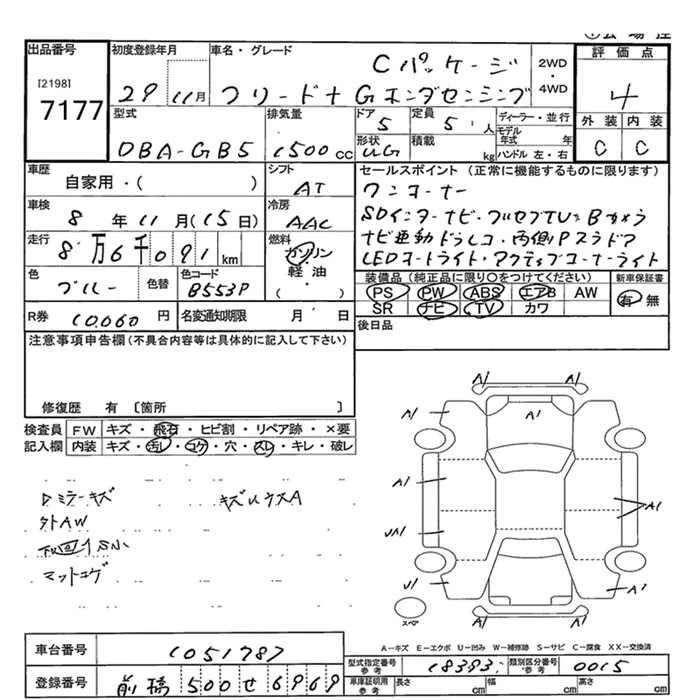 会場控
出品番号
[2198]
7177
初度登録年月
29 11月
車名・グレード
Cパッケージ
フリード+ Gホンダセンシング
2WD
・
4WD
評価点
4
外装 内装
C C
型式
DBA-GB5
排気量
1500cc
ドア
5
定員
5 人
形状
UG
積載
kg
ディーラー・並行
モデル年式 年
ハンドル 左・右
車歴
自家用・( )
シフト
AT
車検
8年11月(15日)
冷房
AAC
走行
8万6千091km
燃料
ガソリン
軽・油
( )
色
ブルー
色替
色コード
B553P
セールスポイント (正常に機能するものに限ります)
ワンオーナー
SDインターナビ・フルセグTV・Bカメラ
ナビ連動ドラレコ・両側Pスラドア
LEDオートライト・アクティブコーナーライト
装備品(純正品に限り○をつけてください)
PS PW ABS エアB AW
SR ナビ TV カワ
新車保証書
有 無
後日品
R券
10,060円
名変通知期限
月 日
注意事項申告欄(不具合内容等は具体的に記入して下さい)
修復歴 有 〔箇所 〕
検査員
記入欄
FW キズ・飛石・ヒビ割・リペア跡・×要
内装 キズ・汚レ・コゲ・穴・スレ・キレ・破レ
ロミラーキズ
キズUクスA
外AW
下回りSハ
マットコゲ
A1 A1
A1 A1 A1
A1 A1
UA1
U1 A1
A1 A1
スペア
A−キズ E−エクボ U−凹み W−補修跡 S−サビ C−腐食 XX−交換済
車台番号
1051787
登録番号
前橋 500 せ 6969
型式指定番号
参考
18393
類別区分番号
参考
0015
車庫証明用
参考
長さ cm
幅 cm
高さ cm